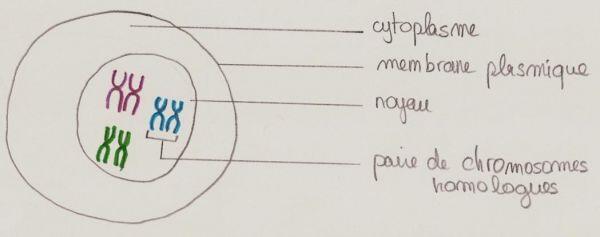 cytoplasme
membrane plasmique
noyau
paire de chromosomes
homologues